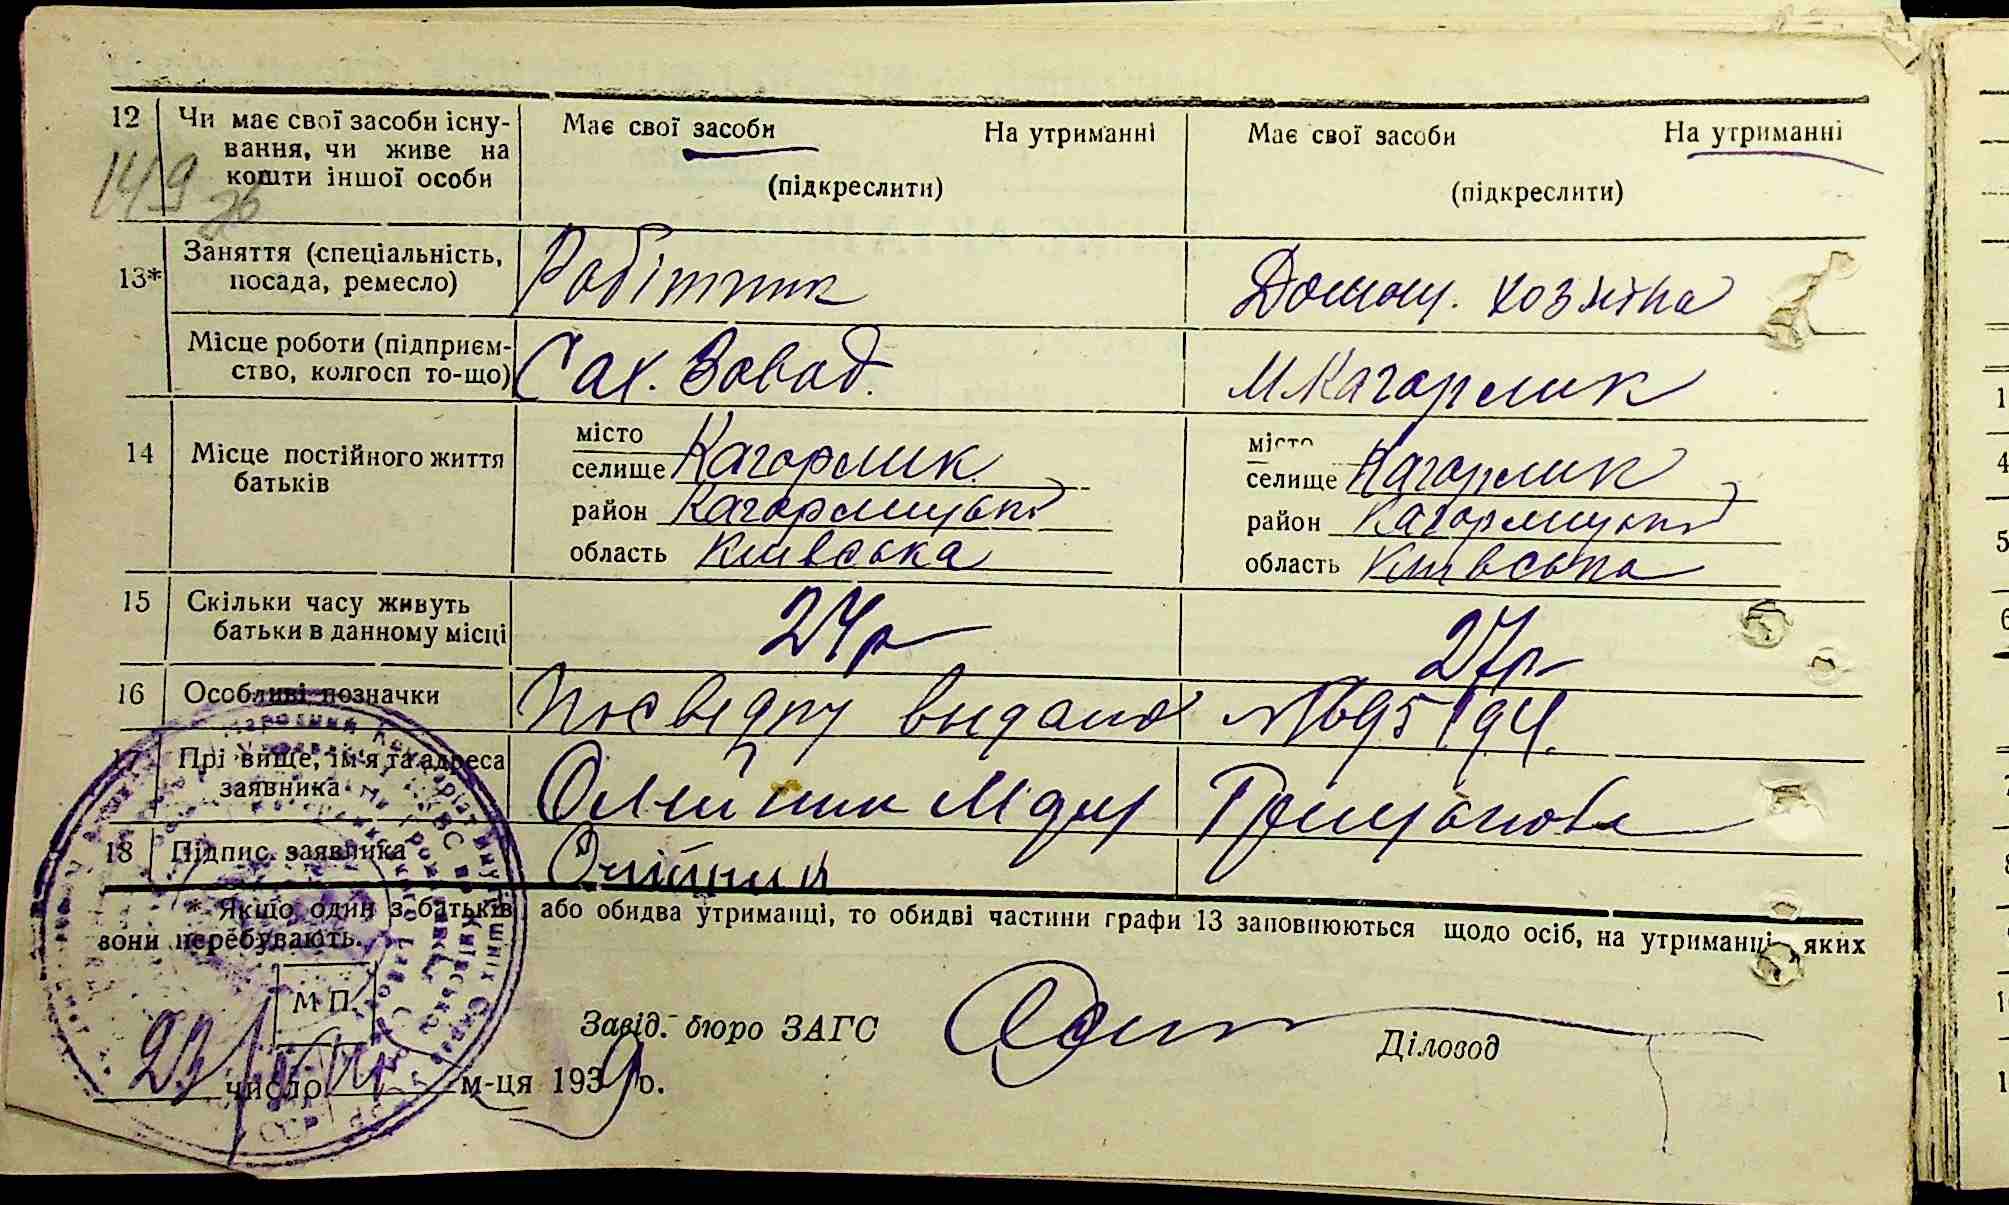 12 Чи має свої засоби існу-
вання, чи живе на
кошти іншої особи
Має свої засоби На утриманні
(підкреслити)
Має свої засоби На утриманні
(підкреслити)
149
13* Заняття (спеціальність,
посада, ремесло)
Робітник
Домаш. хозяйка
Місце роботи (підприєм-
ство, колгосп то-що)
Сах. Завод.
М Кагорлик
14 Місце постійного життя
батьків
місто
селище Кагорлик
район Кагорлицький
область Київська
місто
селище Кагорлик
район Кагорлицький
область Київська
15 Скільки часу живуть
батьки в данному місці
24 р
27 р
16 Особливі позначки
Посвідку видано №695194.
17 Прізвище, ім'я та адреса
заявника
Олійник
18 Підпис заявника
Олійник
* Якщо один з батьків, або обидва утриманці, то обидві частини графи 13 заповнюються щодо осіб, на утриманці яких
вони перебувають.
М П.
Завід. бюро ЗАГС
Діловод
число м-ця 1939 р.